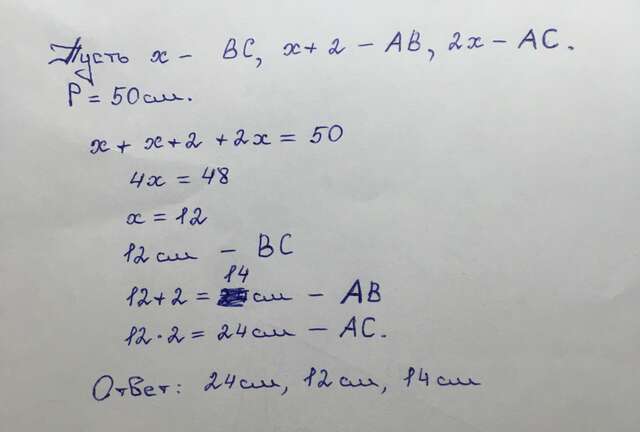 Пусть x - BC, x+2 - AB, 2x - AC.
P = 50см.
x + x+2 +2x = 50
4x = 48
x = 12
12см - BC
12+2 = 14см - AB
12·2 = 24см - AC.
Ответ: 24см, 12см, 14см